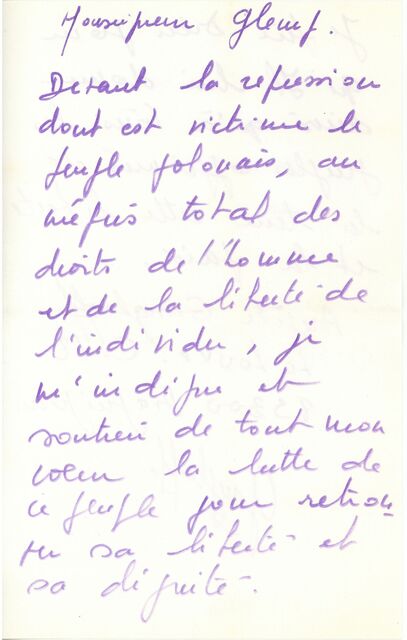 Monseigneur Glemp.
Devant la repression
dont est victime le
peuple polonais, au
mépris total des
droits de l'homme
et de la liberté de
l'individu, je
m'indigne et
soutien de tout mon
coeur la lutte de
ce peuple pour retrou-
ver sa liberté et
sa dignité.